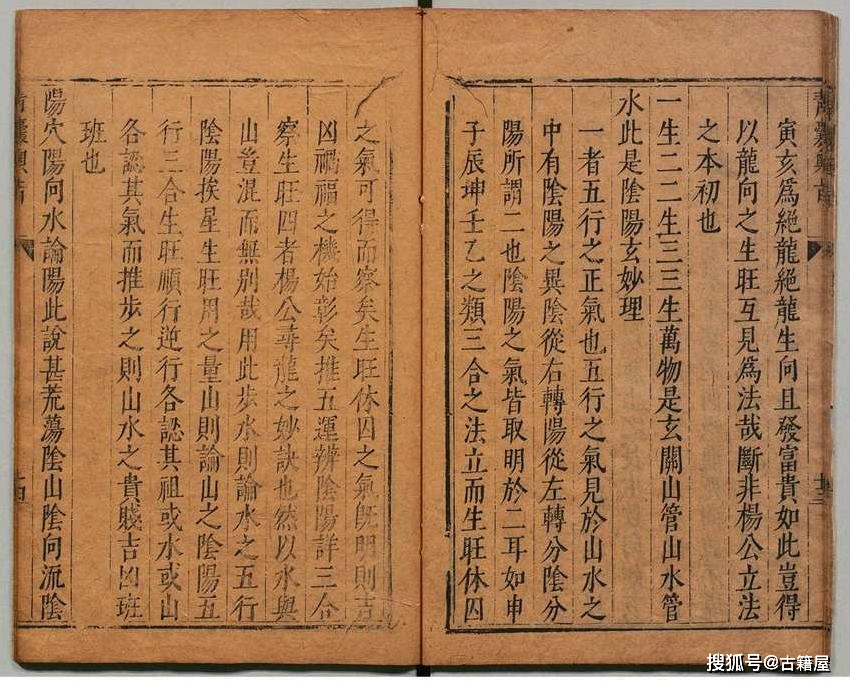 寅亥爲絕龍絕龍生向且發富貴如此豈得
以龍向之生旺互見爲法哉斷非楊公立法
之本初也
一生二二生三三生萬物是玄關山管山水管
水此是陰陽玄妙理
一者五行之正氣也五行之氣見於山水之
中有陰陽之異陰從右轉陽從左轉分陰分
陽所謂二也陰陽之氣皆取明於二耳如申
子辰坤壬乙之類三合之法立而生旺休囚
十三
之氣可得而察矣生旺休囚之氣旣明則吉
凶禍福之機始彰矣推五運辨陰陽詳三合
察生旺四者楊公尋龍之妙訣也然以水與
山豈混而無別哉用此步水則論水之五行
陰陽挨星生旺用之量山則論山之陰陽五
行三合生旺順行逆行各認其祖或水或山
各認其氣而推步之則山水之貴賤吉凶班
班也
陽穴陽向水論陽此說甚荒蕩陰山陰向流陰
青囊奧旨
十四
搜狐号@古籍屋